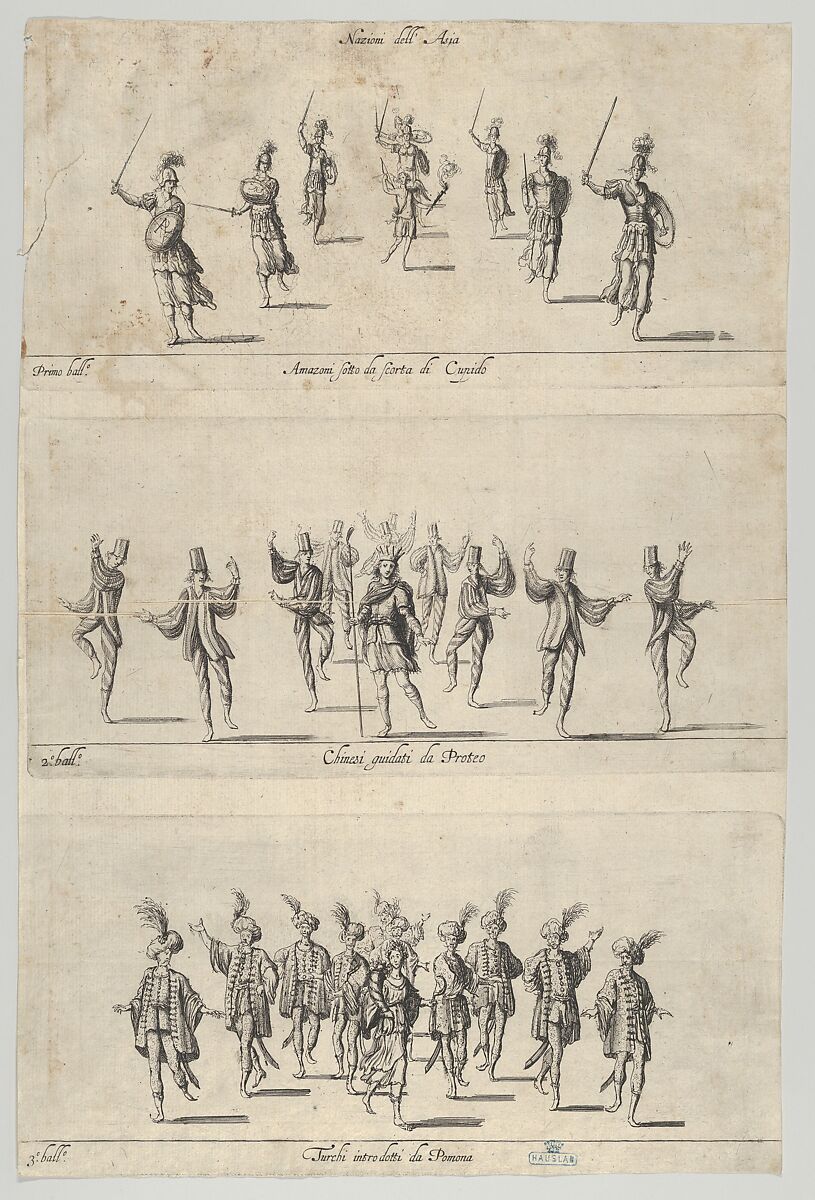 Nazioni dell' Asia
Primo ball.º
Amazoni sotto da scorta di Cupido
2.º ball.º
Chinesi guidati da Proteo
3.º ball.º
Turchi introdotti da Pomona
HAUSLAB